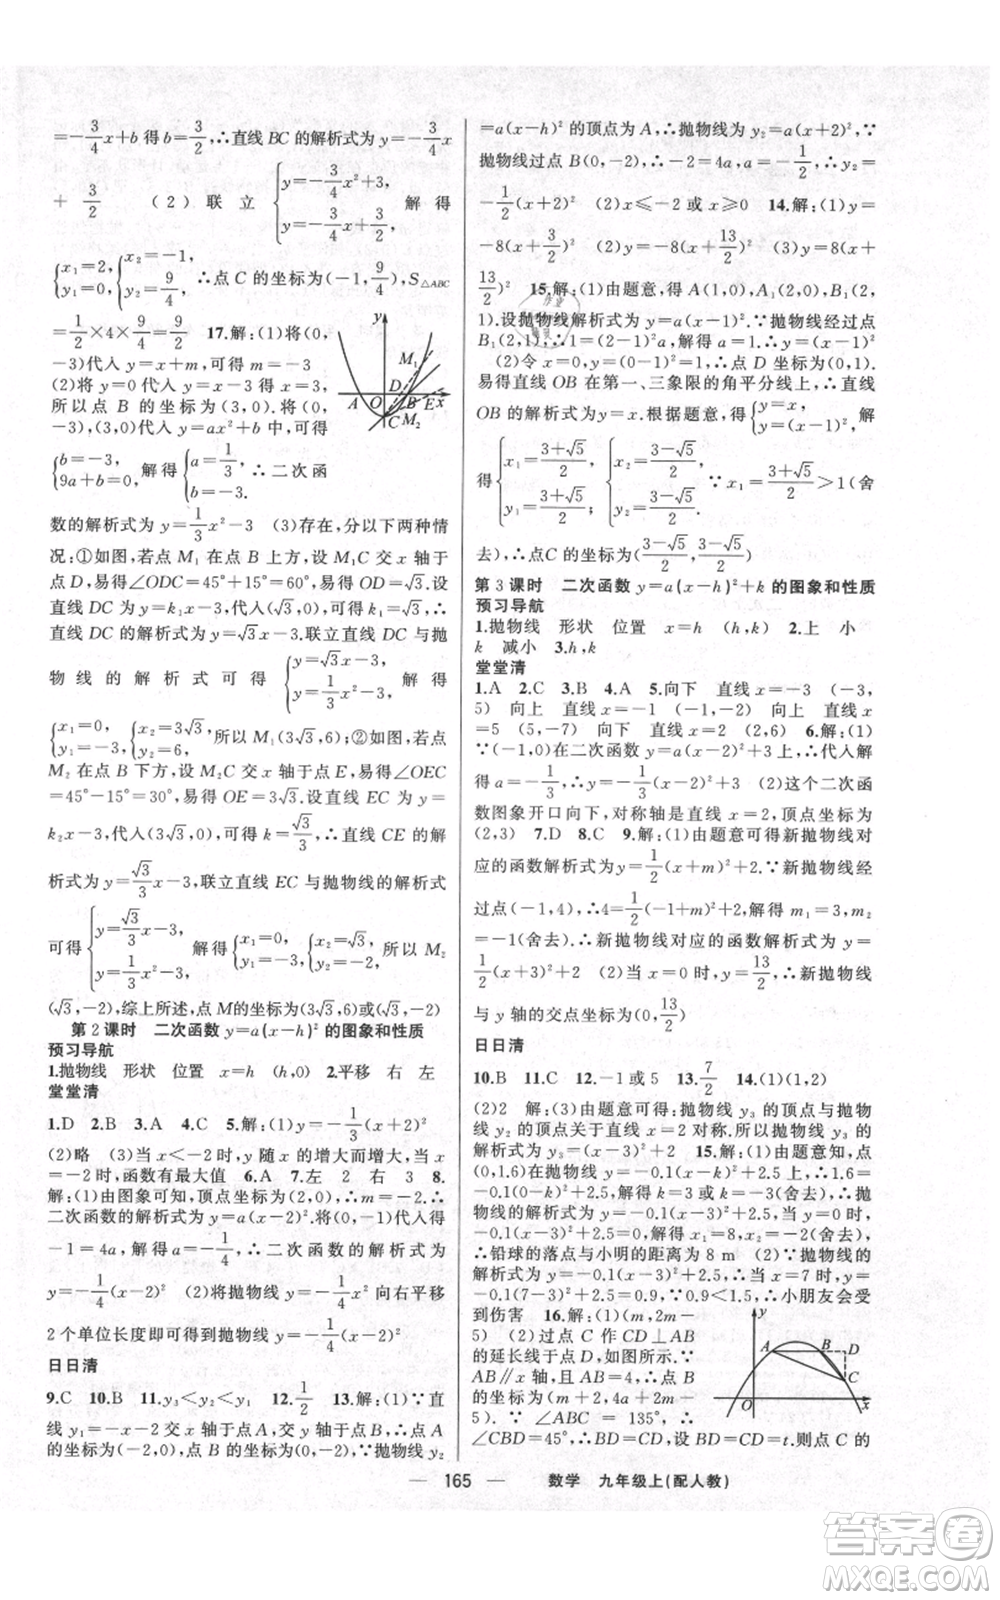 =-3/4x+b 得 b=3/2,∴直线 BC 的解析式为 y=-3/4x
+3/2 (2)联立{y=-3/4x²+3, y=-3/4x+3/2, 解得
{x₁=2, y₁=0, {x₂=-1, y₂=9/4, ∴点 C 的坐标为(-1,9/4),S△ABC
=1/2×4×9/4=9/2 17.解:(1)将(0,
-3)代入 y=x+m,可得 m=-3
(2)将 y=0 代入 y=x-3 得 x=3,
所以点 B 的坐标为(3,0).将(0,
-3),(3,0)代入 y=ax²+b 中,可得
{b=-3, 9a+b=0, 解得{a=1/3, b=-3. ∴二次函
数的解析式为 y=1/3x²-3 (3)存在,分以下两种情
况:①如图,若点 M₁ 在点 B 上方,设 M₁C 交 x 轴于
点 D,易得∠ODC=45°+15°=60°,易得 OD=√3.设
直线 DC 为 y=k₁x-3,代入(√3,0),可得 k₁=√3,∴
直线 DC 的解析式为 y=√3x-3.联立直线 DC 与抛
物线的解析式可得{y=√3x-3, y=1/3x²-3, 解得
{x₁=0, y₁=-3, {x₂=3√3, y₂=6, 所以 M₁(3√3,6);②如图,若点
M₂ 在点 B 下方,设 M₂C 交 x 轴于点 E,易得∠OEC
=45°-15°=30°,易得 OE=3√3.设直线 EC 为 y=
k₂x-3,代入(3√3,0),可得 k=√3/3,∴直线 CE 的解
析式为 y=√3/3x-3,联立直线 EC 与抛物线的解析式
可得{y=√3/3x-3, y=1/3x²-3, 解得{x₁=0, y₁=-3, {x₂=√3, y₂=-2, 所以 M₂
(√3,-2),综上所述,点 M的坐标为(3√3,6)或(√3,-2)
第 2 课时 二次函数 y=a(x-h)² 的图象和性质
预习导航
1.抛物线 形状 位置 x=h (h,0) 2.平移 右 左
堂堂清
1.D 2.B 3.B 4.A 5.解:(1)y=-1/3(x+2)²
(2)略 (3)当 x<-2 时,y 随 x 的增大而增大,当 x
=-2 时,函数有最大值 6.A 7.左 2 右 3 8.
解:(1)由图象可知,顶点坐标为(2,0),∴m=-2.∴
二次函数的解析式为 y=a(x-2)².将(0,-1)代入得
-1=4a,解得 a=-1/4,∴二次函数的解析式为
y=-1/4(x-2)² (2)将抛物线 y=-1/4(x-2)² 向右平移
2 个单位长度即可得到抛物线 y=-1/4(x-4)²
日日清
9.C 10.B 11.y₃<y₂<y₁ 12.1/2 13.解:(1)∵直
线 y₁=-x-2 交 x 轴于点 A,交 y 轴于点 B,∴点 A
的坐标为(-2,0),点 B 的坐标为(0,-2),∵抛物线 y₂
=a(x-h)² 的顶点为 A,∴抛物线为 y₂=a(x+2)²,∵
抛物线过点 B(0,-2),∴-2=4a,∴a=-1/2,∴y₂=
-1/2(x+2)² (2)x≤-2 或 x≥0 14.解:(1)y=
-8(x+3/2)² (2)y=-8(x-13/2)² (3)y=8(x+
13/2)² 15.解:(1)由题意,得 A(1,0),A₁(2,0),B₁(2,
1).设抛物线解析式为 y=a(x-1)².∵抛物线经过点
B₁(2,1),∴1=a(2-1)²,解得 a=1,∴y=(x-1)²
(2)令 x=0,y=(0-1)²=1,∴点 D 坐标为(0,1).
易得直线 OB 在第一、三象限的角平分线上,∴直线
OB 的解析式为 y=x.根据题意,得{y=x, y=(x-1)², 解
得{x₁=(3+√5)/2, y₁=(3+√5)/2, {x₂=(3-√5)/2, y₂=(3-√5)/2. ∵x₁=(3+√5)/2>1(舍
去),∴点C 的坐标为((3-√5)/2,(3-√5)/2)
第 3 课时 二次函数 y=a(x-h)²+k 的图象和性质
预习导航
1.抛物线 形状 位置 x=h (h,k) 2.上 小
k 减小 3.h,k
堂堂清
1.A 2.C 3.B 4.A 5.向下 直线 x=-3 (-3,
5) 向上 直线 x=-1 (-1,-2) 向上 直线 x
=5 (5,-7) 向下 直线 x=2 (2,6) 6.解:(1)
∵(-1,0)在二次函数 y=a(x-2)²+3 上,∴代入解
得 a=-1/3,∴y=-1/3(x-2)²+3 (2)这个二次函
数图象开口向下,对称轴是直线 x=2,顶点坐标为
(2,3) 7.D 8.C 9.解:(1)由题意可得新抛物线对
应的函数解析式为 y=1/2(x+m)²+2.∵新抛物线经
过点(-1,4),∴4=1/2(-1+m)²+2,解得 m₁=3,m₂
=-1(舍去),∴新抛物线对应的函数解析式为 y=
1/2(x+3)²+2 (2)当 x=0 时,y=13/2,∴新抛物线
与 y 轴的交点坐标为(0,13/2)
日日清
10.B 11.C 12.-1 或 5 13.7/2 14.(1)(1,2)
(2)2 解:(3)由题意可得:抛物线 y₃ 的顶点与抛物
线 y₂ 的顶点关于直线 x=2 对称.所以抛物线 y₃ 的
解析式为 y₃=(x-3)²+2 15.解:(1)由题意知,点
(0,1.6)在抛物线 y=-0.1(x-k)²+2.5 上,∴1.6
=-0.1(0-k)²+2.5,解得 k=3 或 k=-3(舍去),∴抛
物线的解析式为 y=-0.1(x-3)²+2.5,当 y=0 时,
-0.1(x-3)²+2.5=0,解得 x=8 或 x=-2(舍去),
∴铅球的落点与小明的距离为 8 m (2)∵抛物线的
解析式为 y=-0.1(x-3)²+2.5,∴当 x=7 时,y=
-0.1(7-3)²+2.5=0.9.∵0.9<1.5,∴小朋友会受
到伤害 16.解:(1)(m,2m-
5) (2)过点 C 作 CD⊥AB
的延长线于点 D,如图所示.∵
AB∥x 轴,且 AB=4,∴点 B
的坐标为(m+2,4a+2m-
5).∵∠ABC=135°,∴
∠CBD=45°,∴BD=CD,设 BD=CD=t.则点 C 的
y
M₁
D
A O B E x
C M₂
y
A B D
C
O x
— 165 — 数学 九年级上(配人教)
答案卷